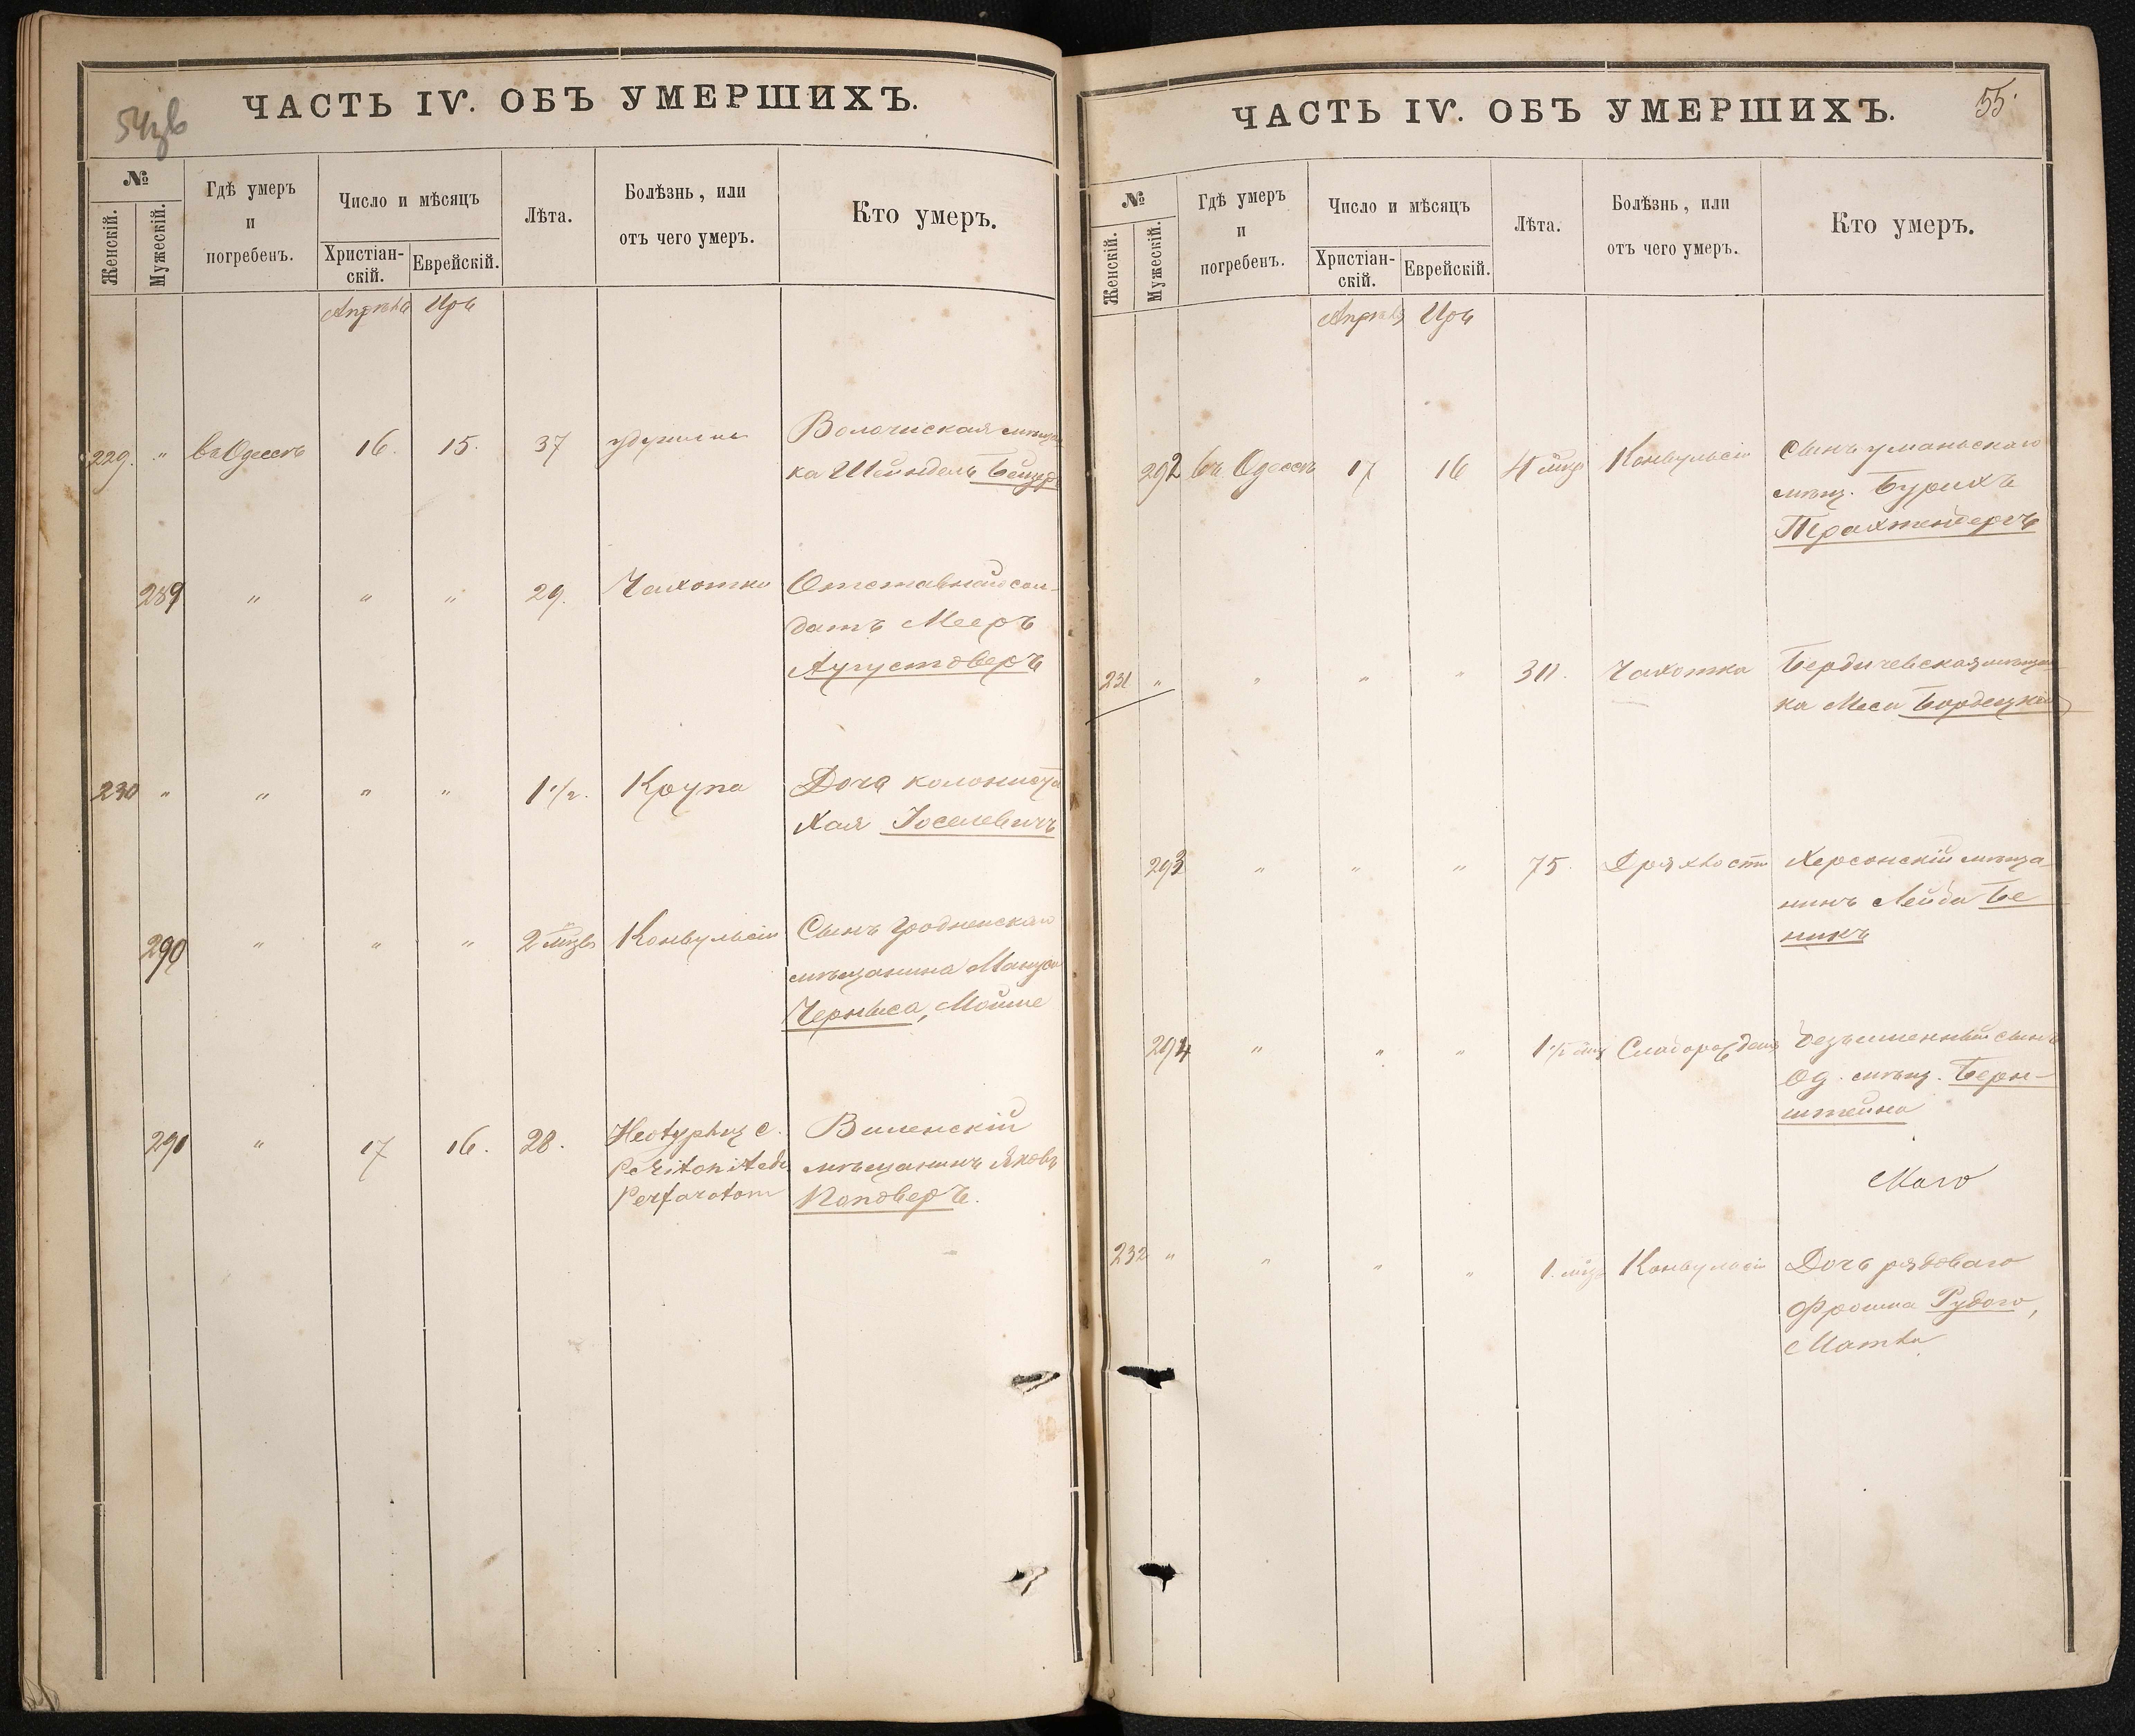 54зв
ЧАСТЬ IV. ОБЪ УМЕРШИХЪ.
№
Женскій.
Мужескій.
Гдѣ умеръ
и
погребенъ.
Число и мѣсяцъ
Христіан-
скій.
Еврейскій.
Лѣта.
Болѣзнь, или
отъ чего умеръ.
Кто умеръ.
Апрѣль Иръ
229. " въ Одессѣ 16. 15. 37 Волочиская мѣщан
ка Шейндель
289 " " " 29. Чахотка Отставной сол-
датъ Мееръ
Аугустоверъ
230 " " " " 1 1/2. Крупа Дочь колониста
Хая Іоселевичъ
290 " " " 2 мѣсяц Конвульсіи Сынъ Гродненскаго
мѣщанина
Черныса, Мойше
291 " 17 16. 28. Виленскій
Peritonitide мѣщанинъ Яковъ
Perforatom Коповеръ.
55.
ЧАСТЬ IV. ОБЪ УМЕРШИХЪ.
№
Женскій.
Мужескій.
Гдѣ умеръ
и
погребенъ.
Число и мѣсяцъ
Христіан-
скій.
Еврейскій.
Лѣта.
Болѣзнь, или
отъ чего умеръ.
Кто умеръ.
Апрѣль Иръ
292 въ Одессѣ 17 16 Конвульсіи Сынъ уманьскаго
мѣщ. Бурихъ
Трахтенбергъ
231 " " " " Чахотка Бердичевская мѣщан
ка Меси Бордецкая
293 " " " 75. Дряхлость Херсонскій мѣща
нинъ Лейба Бе
нинъ
294 " " " Слаборожден Безъименный сынъ
Од. мѣщ. Берн-
штейна
Мого
232 " " " " 1. мѣс Конвульсіи Дочь рядоваго
Фроима Рудого,
Матля